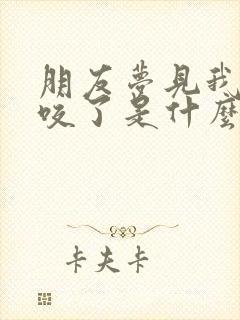 朋友夢見我
咬了是什麼
卡夫卡